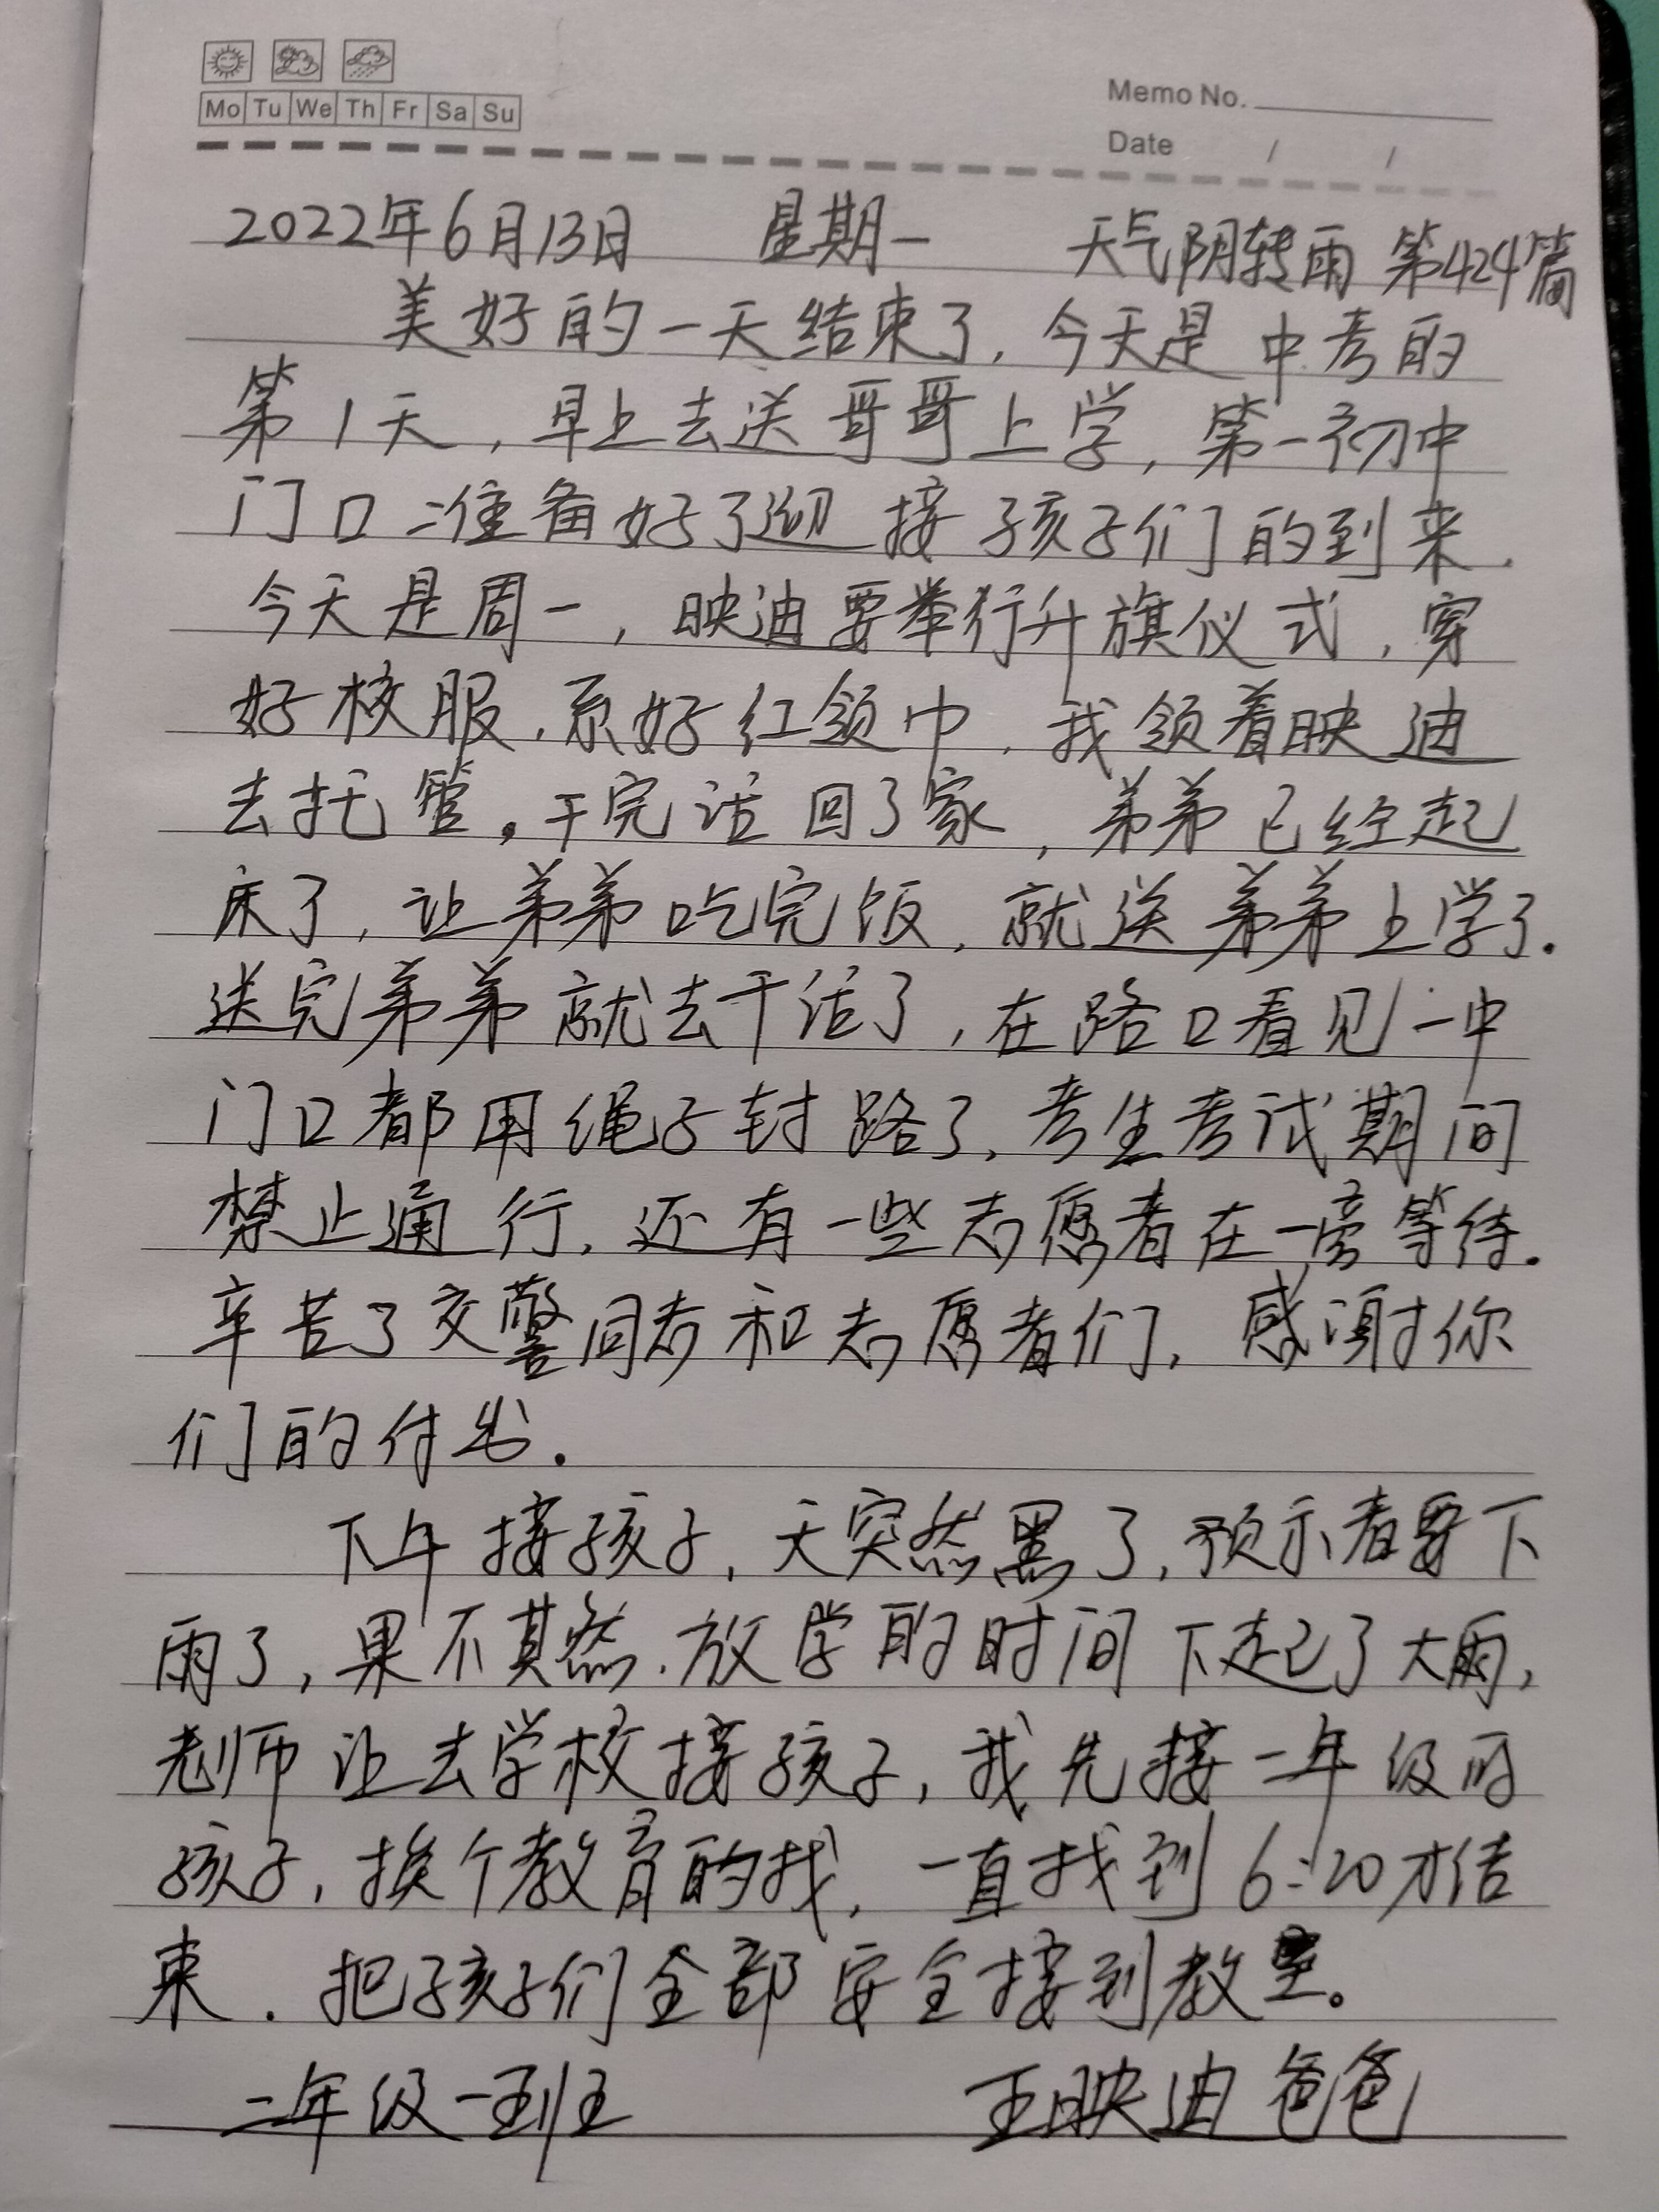 Mo Tu We Th Fr Sa Su
Memo No.
Date / /
2022年6月13日 星期一 天气阴转雨 第424篇
美好的一天结束了,今天是中考的
第1天,早上去送哥哥上学,第一初中
门口准备好了迎接孩子们的到来.
今天是周一,映迪要举行升旗仪式,穿
好校服.系好红领巾.我领着映迪
去托管。干完活回了家,弟弟已经起
床了,让弟弟吃完饭,就送弟弟上学了.
送完弟弟就去干活了,在路口看见一中
门口都用绳子封路了,考生考试期间
禁止通行,还有一些志愿者在一旁等待.
辛苦了交警同志和志愿者们,感谢你
们的付出.
下午接孩子,天突然黑了,预示着要下
雨了,果不其然.放学的时间下起了大雨,
老师让去学校接孩子,我先接二年级的
孩子,挨个教育的找,一直找到6:20才结
束.把孩子们全部安全接到教室。
二年级一班 王映迪爸爸